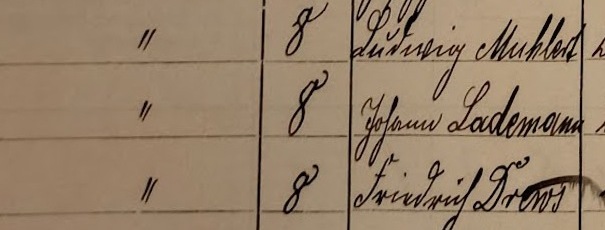 " 8 Ludwig Muhlert
" 8 Johann Lademann
" 8 Friedrich Drews